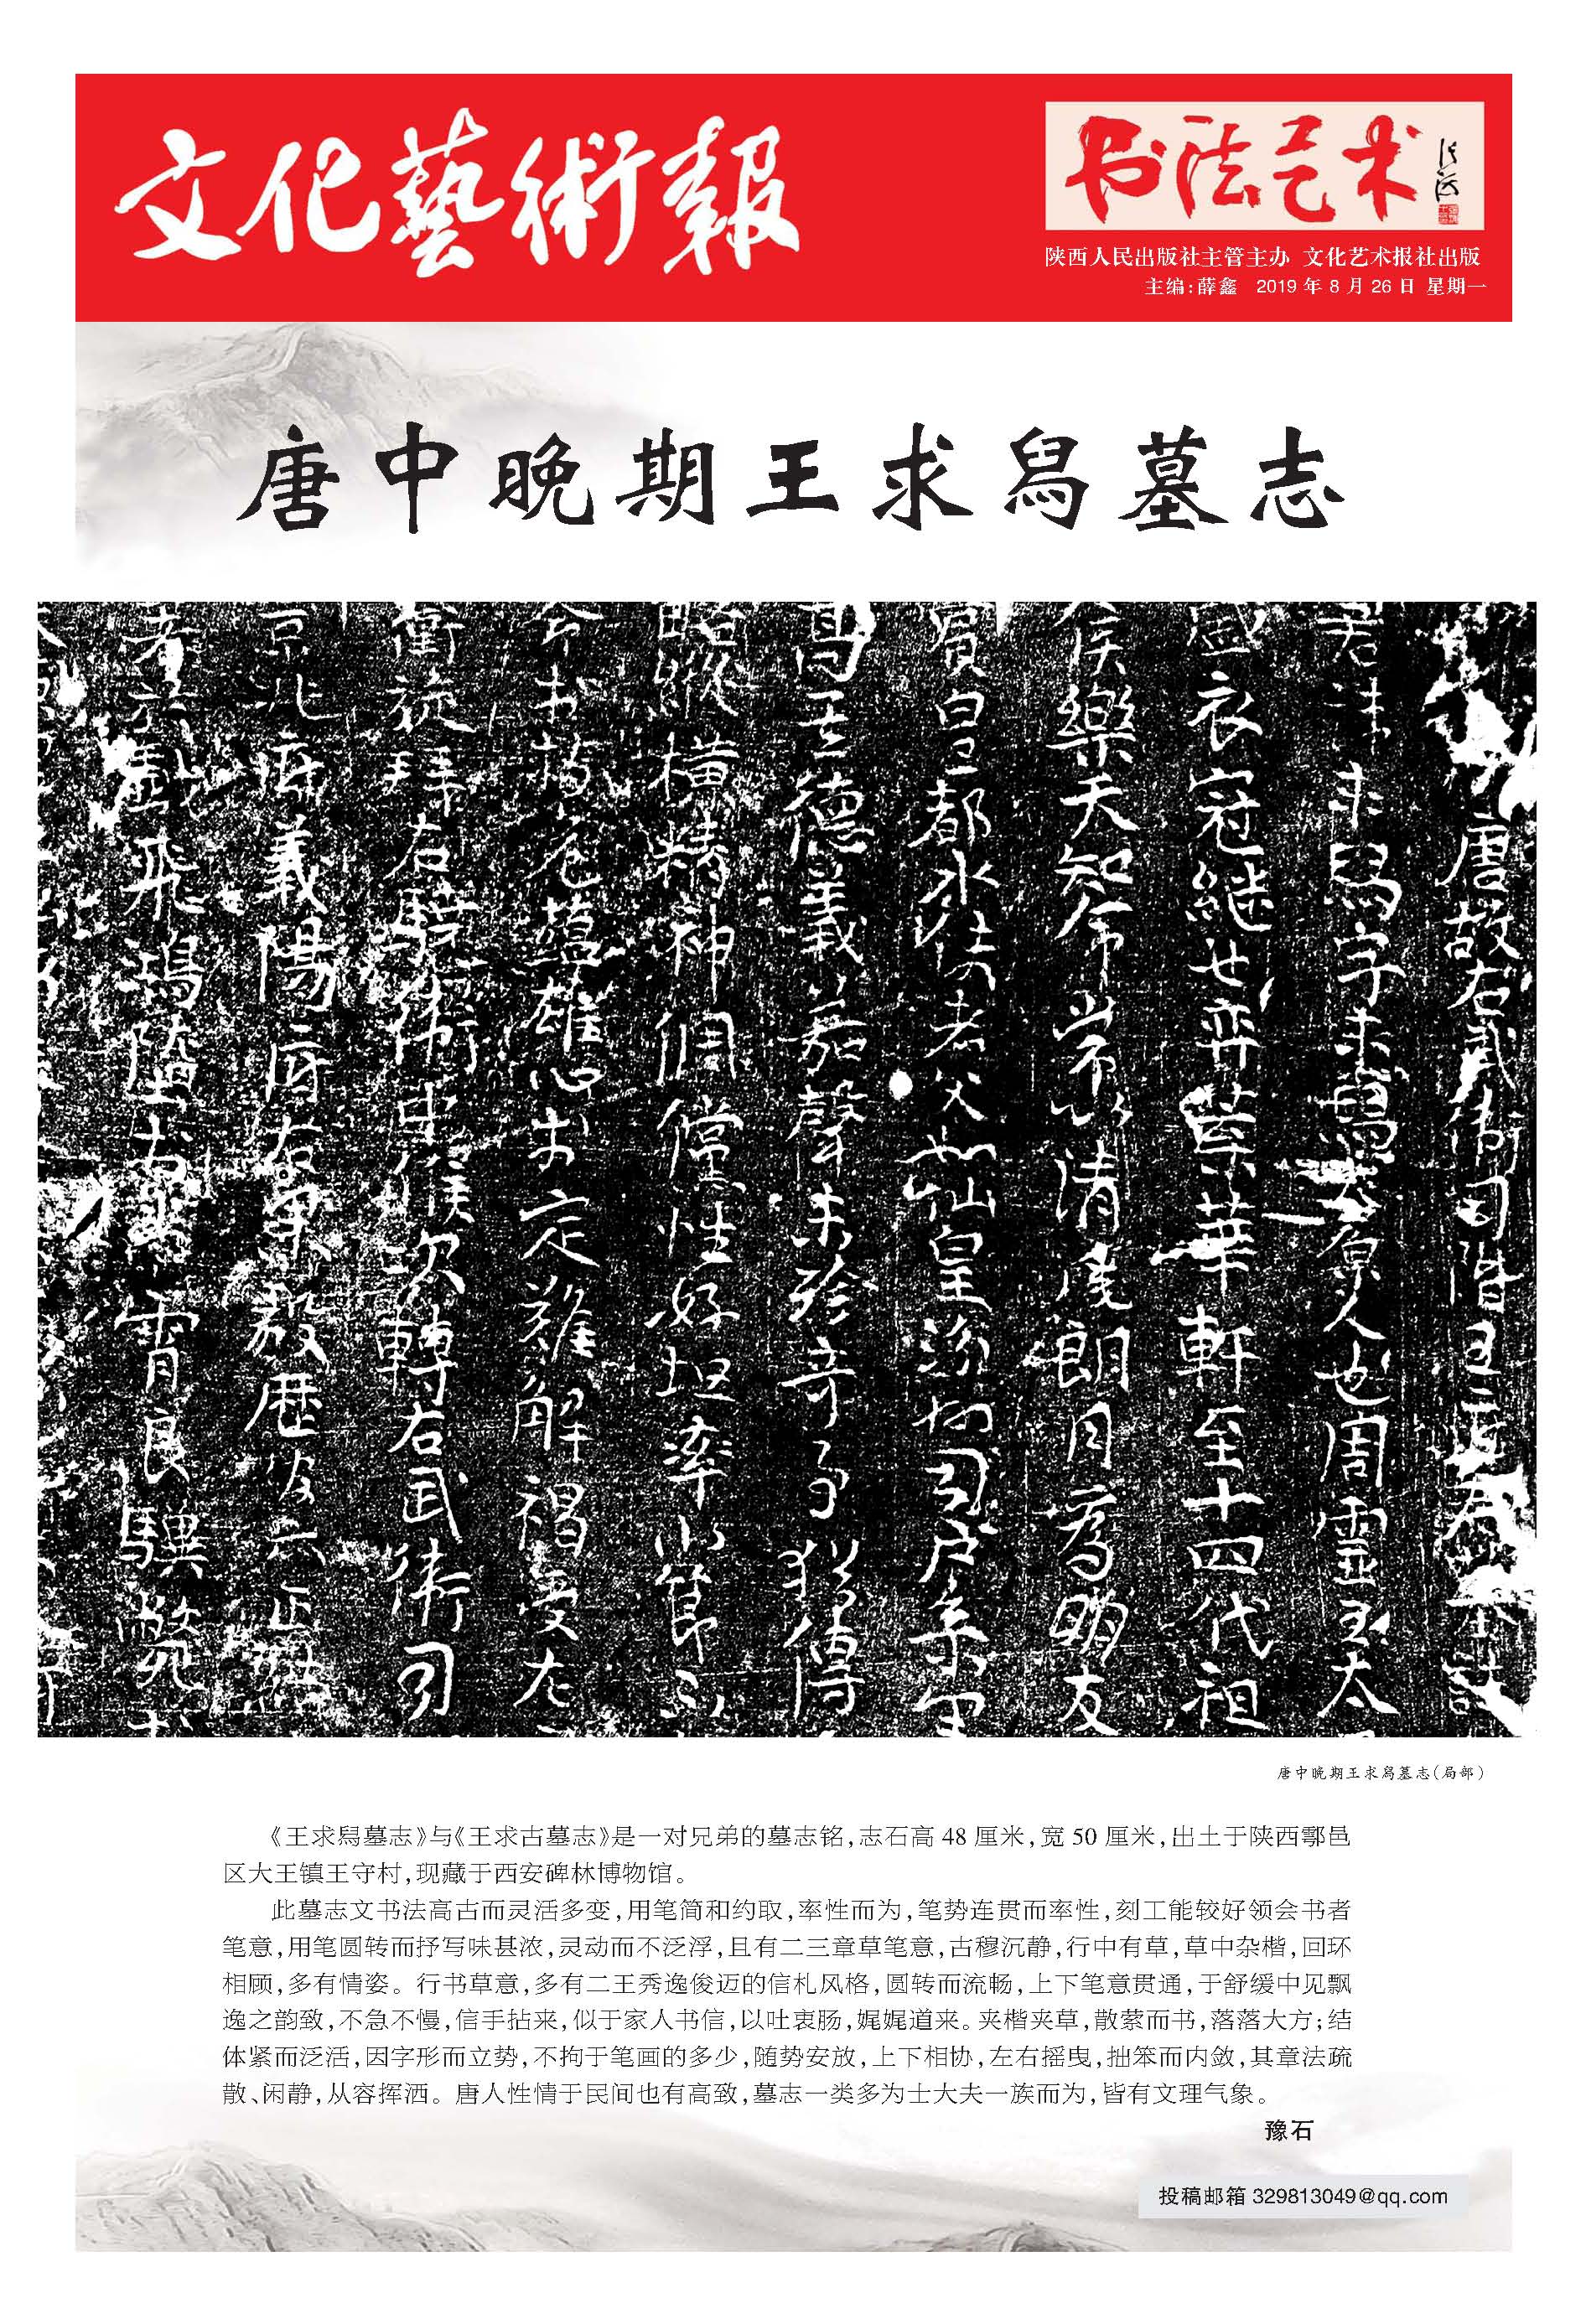 文化藝術報
书法艺术
陕西人民出版社主管主办 文化艺术报社出版
主编:薛鑫 2019 年 8 月 26 日 星期一
唐中晚期王求舄墓志
唐故右武衛司階
求舄字求舄太原人也周靈王太
盛衣冠継世弈葉華軒至十四代祖
侯樂天知命常以清風朗月為朋友
賓皇都水使者父如仙皇汾州司户参軍
德義茲聲未殄奇子猶傳
略縱橫精神倜儻性好坦率小節不
書蘊雄心未定難解褐受左
衛旋拜右驍衛中候次轉右武衛司
京兆府義陽府右果毅歷後六正
飛鴻墮霄良驥
唐中晚期王求舄墓志(局部)
《王求舄墓志》与《王求古墓志》是一对兄弟的墓志铭,志石高 48 厘米,宽 50 厘米,出土于陕西鄠邑
区大王镇王守村,现藏于西安碑林博物馆。
此墓志文书法高古而灵活多变,用笔简和约取,率性而为,笔势连贯而率性,刻工能较好领会书者
笔意,用笔圆转而抒写味甚浓,灵动而不泛浮,且有二三章草笔意,古穆沉静,行中有草,草中杂楷,回环
相顾,多有情姿。行书草意,多有二王秀逸俊迈的信札风格,圆转而流畅,上下笔意贯通,于舒缓中见飘
逸之韵致,不急不慢,信手拈来,似于家人书信,以吐衷肠,娓娓道来。夹楷夹草,散萦而书,落落大方;结
体紧而泛活,因字形而立势,不拘于笔画的多少,随势安放,上下相协,左右摇曳,拙笨而内敛,其章法疏
散、闲静,从容挥洒。唐人性情于民间也有高致,墓志一类多为士大夫一族而为,皆有文理气象。
豫石
投稿邮箱 329813049@qq.com